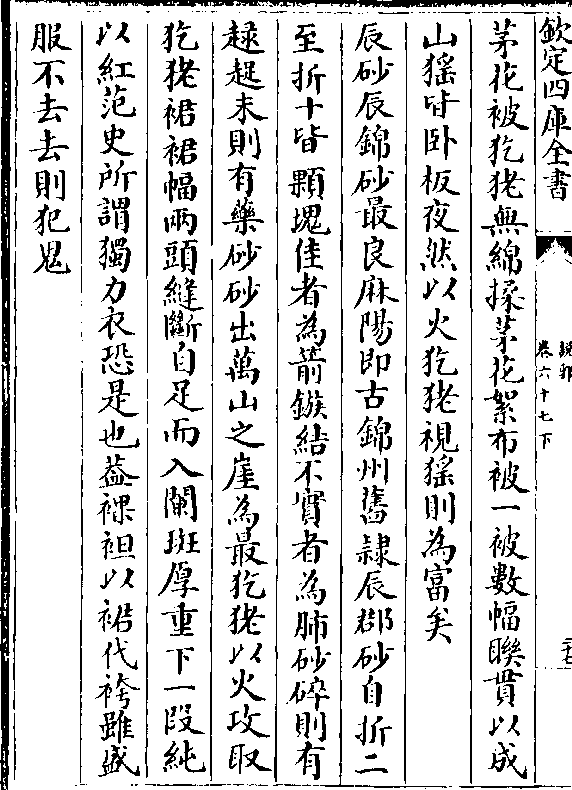 欽定四庫全書
說郛
卷六十七下
二十七
茅花被犵狫無綿揉茅花絮布被一被數幅聨貫以成
山猺皆臥板夜然以火犵狫視猺則為富矣
辰砂辰錦砂最良麻陽即古錦州舊隷辰郡砂自折二
至折十皆顆塊佳者為箭鏃結不實者為肺砂碎則有
趢趗末則有藥砂砂出萬山之崖為最犵狫以火攻取
犵狫裙裙幅兩頭縫斷自足而入闌斑厚重下一段純
以紅范史所謂獨力衣恐是也葢裸袒以裙代袴雖盛
服不去去則犯鬼